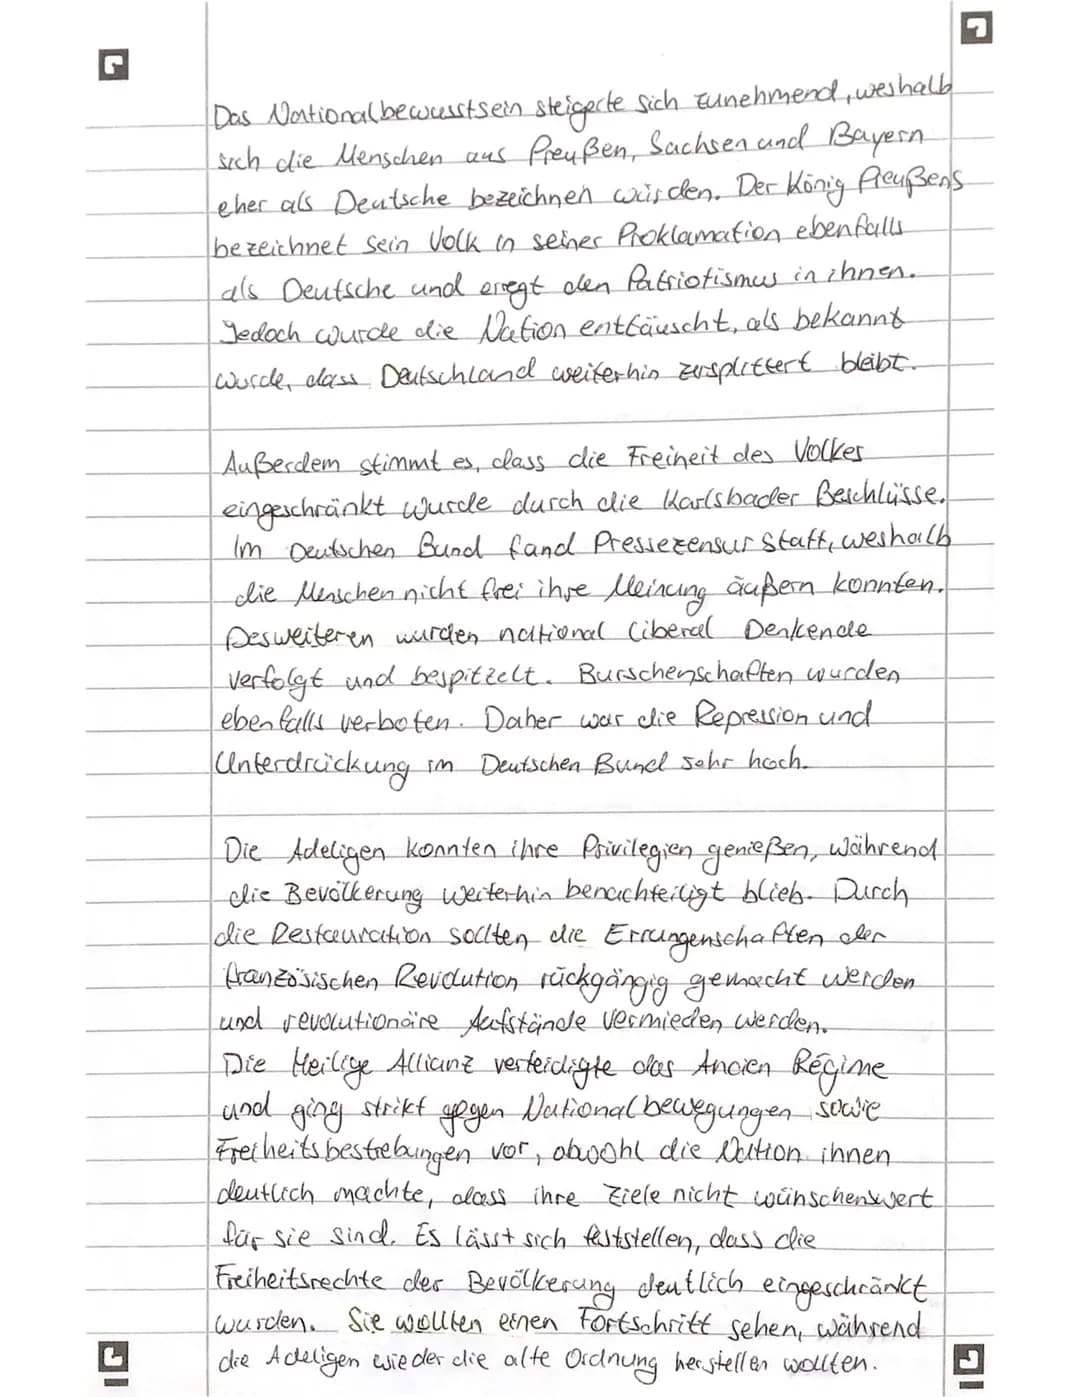 Das Nationalbewusstsein steigerte sich zunehmend, weshalb
sich die Menschen aus Preußen, Sachsen und Bayern
eher als Deutsche bezeichnen würden. Der König Preußens
bezeichnet sein Volk in seiner Proklamation ebenfalls
als Deutsche und erregt den Patriotismus in ihnen.
Jedoch wurde die Nation enttäuscht, als bekannt
wurde, dass Deutschland weiterhin zersplittert bleibt.
Außerdem stimmt es, dass die Freiheit des Volkes
eingeschränkt wurde durch die Karlsbader Beschlüsse.
Im Deutschen Bund fand Pressezensur statt, weshalb
die Menschen nicht frei ihre Meinung äußern konnten.
Desweiteren wurden national liberal Denkende
verfolgt und bespitzelt. Burschenschaften wurden
ebenfalls verboten. Daher war die Repression und
Unterdrückung im Deutschen Bund sehr hoch.
Die Adeligen konnten ihre Privilegien genießen, während
die Bevölkerung weiterhin benachteiligt blieb. Durch
die Restauration sollten die Errungenschaften der
französischen Revolution rückgängig gemacht werden
und revolutionäre Aufstände vermieden werden.
Die Heilige Allianz verteidigte das Ancien Régime
und ging strikt gegen Nationalbewegungen sowie
Freiheitsbestrebungen vor, obwohl die Nation ihnen
deutlich machte, dass ihre Ziele nicht wünschenswert
für sie sind. Es lässt sich feststellen, dass die
Freiheitsrechte der Bevölkerung deutlich eingeschränkt
wurden. Sie wollten einen Fortschritt sehen, während
die Adeligen wieder die alte Ordnung herstellen wollten.